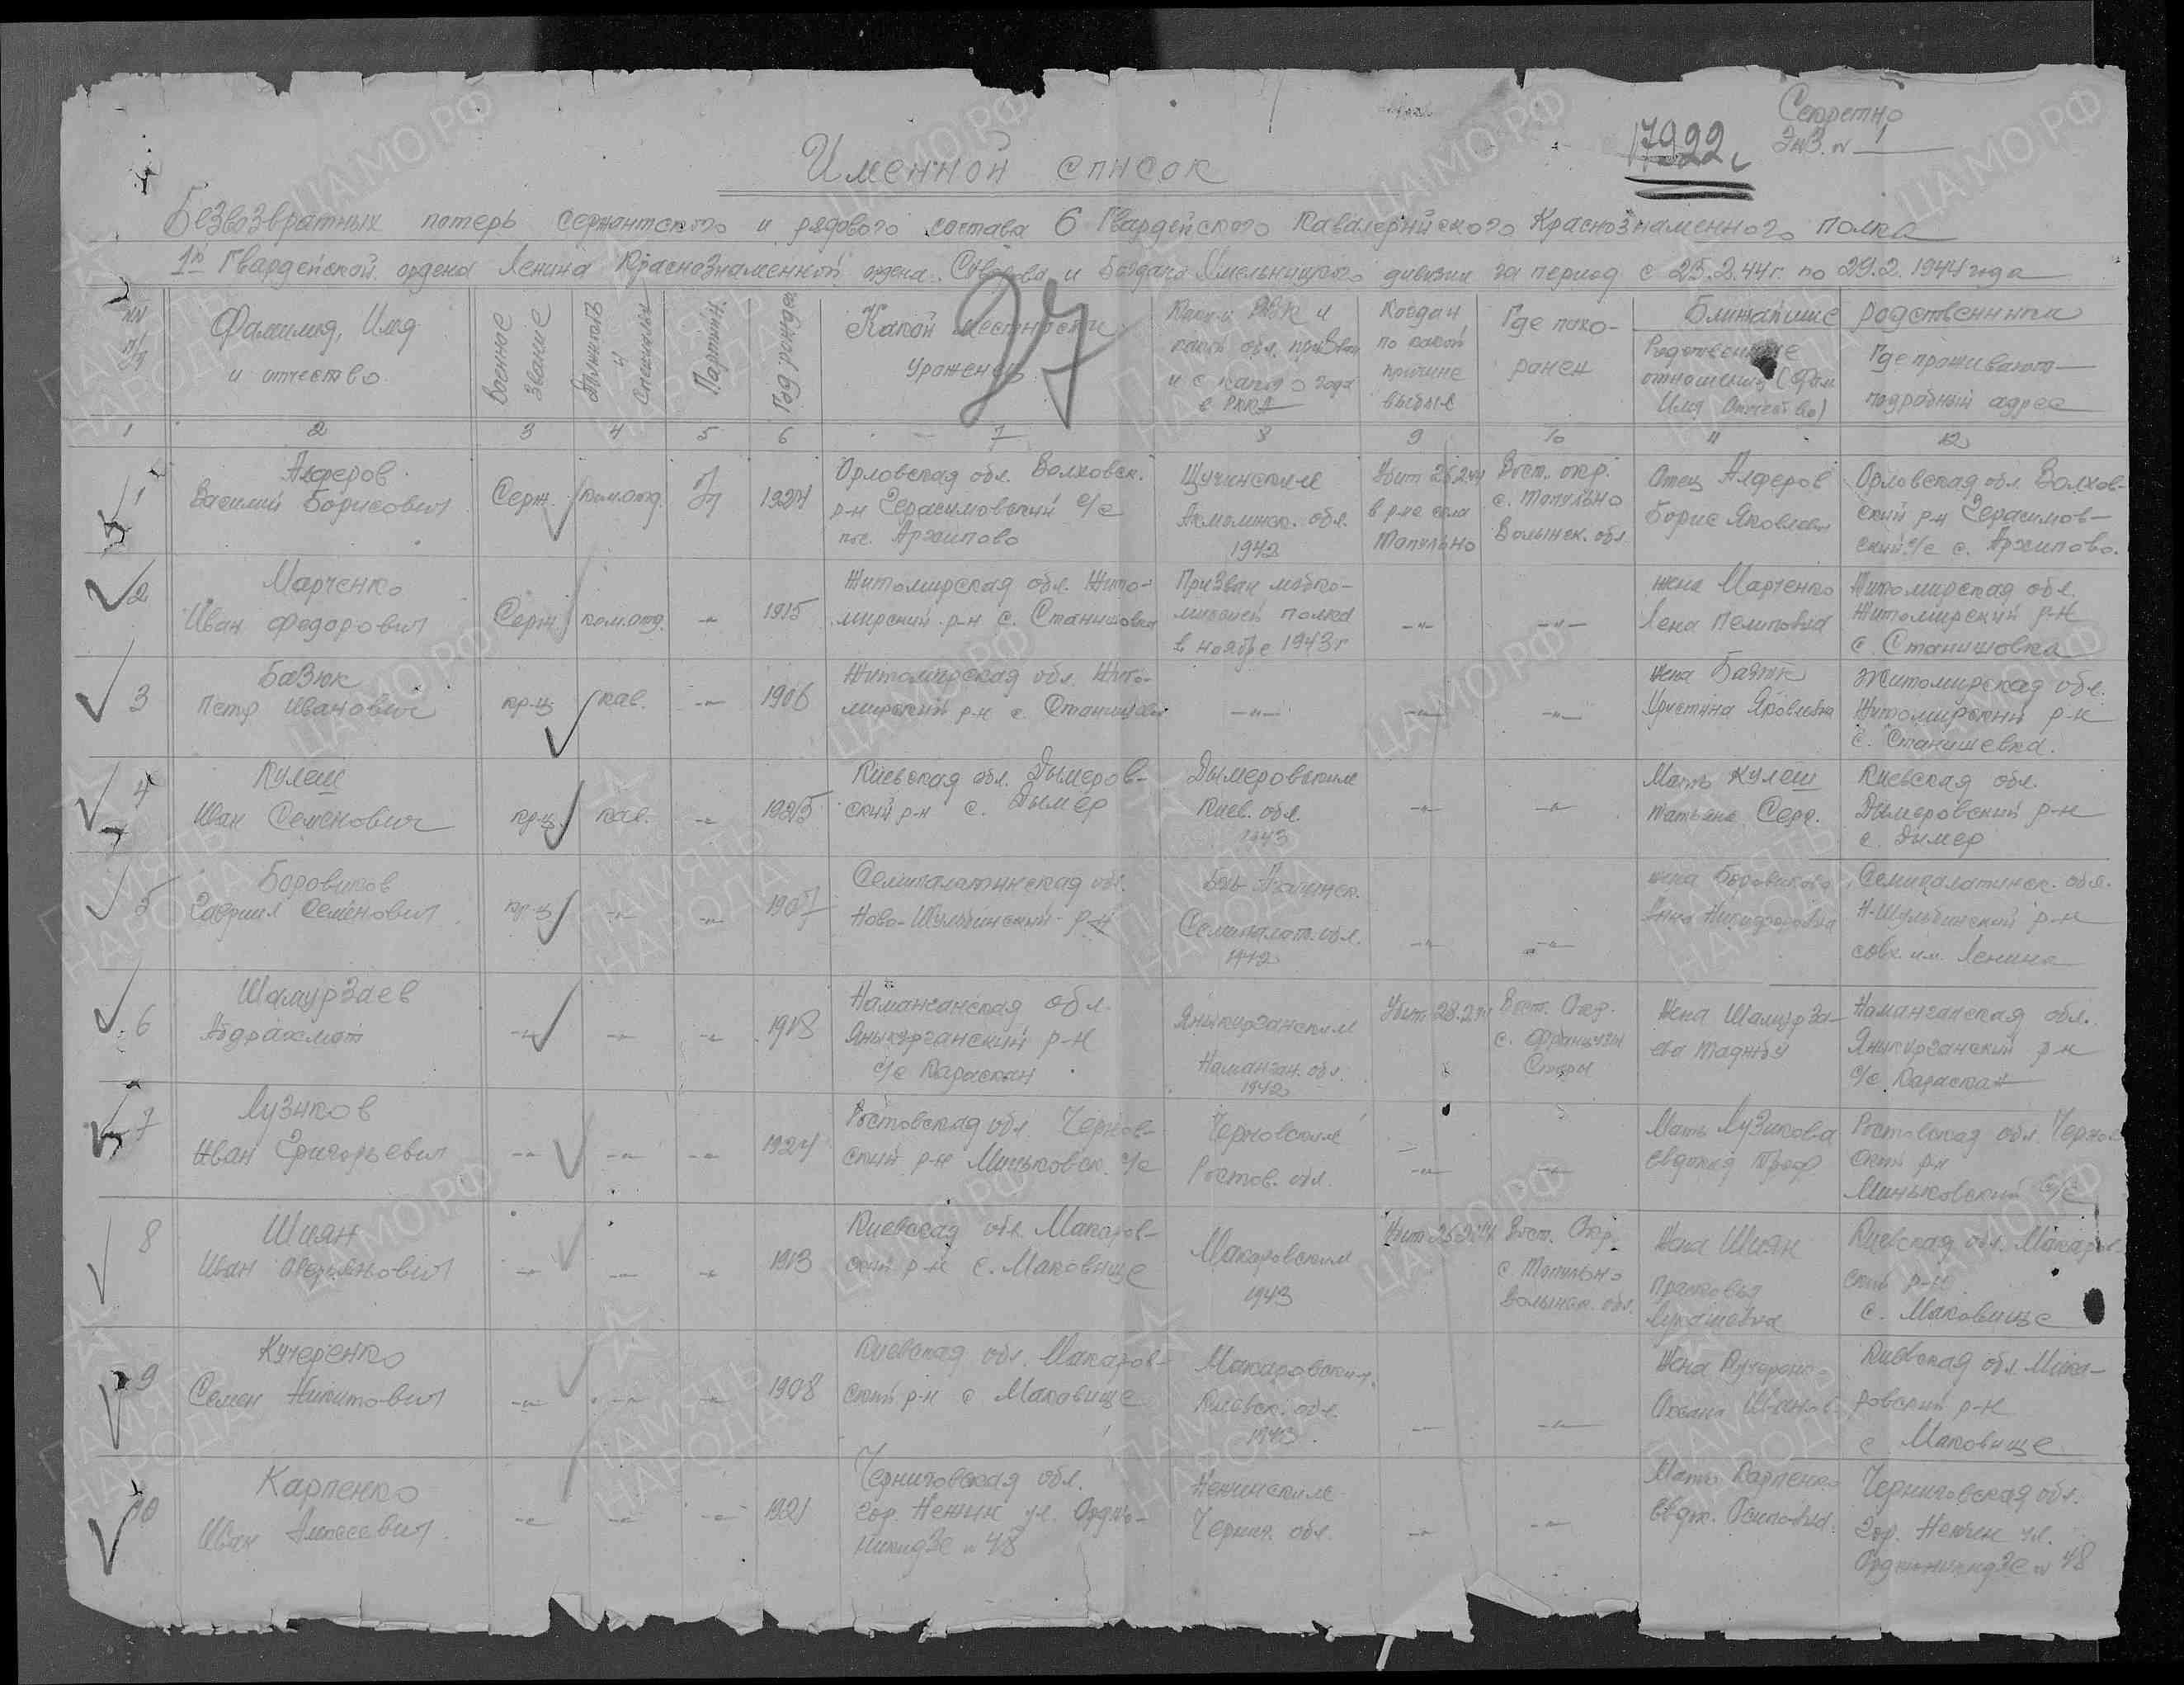 Секретно
Экз. № 1
17922с
Именной список
Безвозвратных потерь сержантского и рядового состава 6 Гвардейского Кавалерийского Краснознаменного полка
1й Гвардейской ордена Ленина Краснознаменной ордена Суворова и Богдана Хмельницкого дивизии за период с 25.2.44г. по 29.2.1944 года
NN п/п
Фамилия, Имя и отчество
Военное звание
Должность и специальн
Партийн.
Год рожден
Какой местности уроженец
Каким РВК и какой обл. призван и с какого года в РККА
Когда и по какой причине выбыл
Где похоронен
Ближайшие родственники
Родственные отношения (Фам Имя Отчество)
Где проживают подробный адрес
1 2 3 4 5 6 7 8 9 10 11 12
1 Алферов Василий Борисович
Серж. ком.отд. 1924
Орловская обл. Волховск. р-н Герасимовский с/с пос. Архипово
Щучинским Акмолинск. обл. 1942
Убит 26.2.44 в р-не села Топульно
Вост. окр. с. Топульно Волынск. обл.
Отец Алферов Борис Яковлевич
Орловская обл. Волховский р-н Герасимовский с/с с. Архипово.
2 Марченко Иван Федорович
Серж. ком.отд. -"- 1915
Житомирская обл. Житомирский р-н с. Станишовка
Призван моб. полка в ноябре 1943г
-"- -"-
жена Марченко Лена
Житомирская обл. Житомирский р-н с. Станишовка
3 Базюк Петр Иванович
кр-ц кав. -"- 1906
Житомирская обл. Житомирский р-н с. Станишовка
-"- -"- -"-
жена Базюк Христина Яковлевна
Житомирская обл. Житомирский р-н с. Станишевка.
4 Кулеш Иван Семенович
кр-ц кав. -"- 1925
Киевская обл. Дымеровский р-н с. Дымер
Дымеровским Киев. обл. 1943
-"- -"-
Мать Кулеш Татьяна Серг.
Киевская обл. Дымеровский р-н с. Дымер
5 Боровиков Гавриил Семенович
кр-ц -"- -"- 1907
Семипалатинская обл. Ново-Шульбинский р-н
Семипалат. обл. 1942
-"- -"-
жена Боровикова Анна Никифоровна
Семипалатинск. обл. Н-Шульбинский р-н совх им. Ленина
6 Шамурзаев Абдрахмат
-"- -"- -"- 1918
Наманганская обл. Яныкурганский р-н с/с Караскан
Яныкурганским Наманган. обл. 1942
Убит 28.2.44
Вост. Окр. с. Французы
Жена Шамурзаева
Наманганская обл. Яныкурганский р-н с/с Караскан
7 Лузиков Иван Григорьевич
-"- -"- -"- 1924
Ростовская обл. Чернов-ский р-н Миньковск. с/с
Черновским Ростов. обл.
-"- -"-
Мать Лузикова Евдокия
Ростовская обл. Чернов ский р-н Миньковский с/с
8 Шиян Иван
-"- -"- -"- 1913
Киевская обл. Макаровский р-н с. Маковище
Макаровским 1943
Убит 26.2.44
Вост. Окр. с. Топульно Волынск. обл.
Жена Шиян Прасковья Лукашевна
Киевская обл. Макаров ский р-н с. Маковище
9 Кучеренко Семен Никитович
-"- -"- -"- 1908
Киевская обл. Макаров-ский р-н с Маковище
Макаровским Киевск. обл. 1943
-"- -"-
Жена Кучеренко Оксана Иванов.
Киевская обл. Мака-ровский р-н с Маковище
10 Карпенко Иван Алексеевич
-"- -"- -"- 1921
Черниговская обл. гор. Нежин ул. Орджо-никидзе № 48
Нежинским Черниг. обл.
-"- -"-
Мать Карпенко Евдок. Осиповна
Черниговская обл. гор. Нежин ул. Орджоникидзе № 48